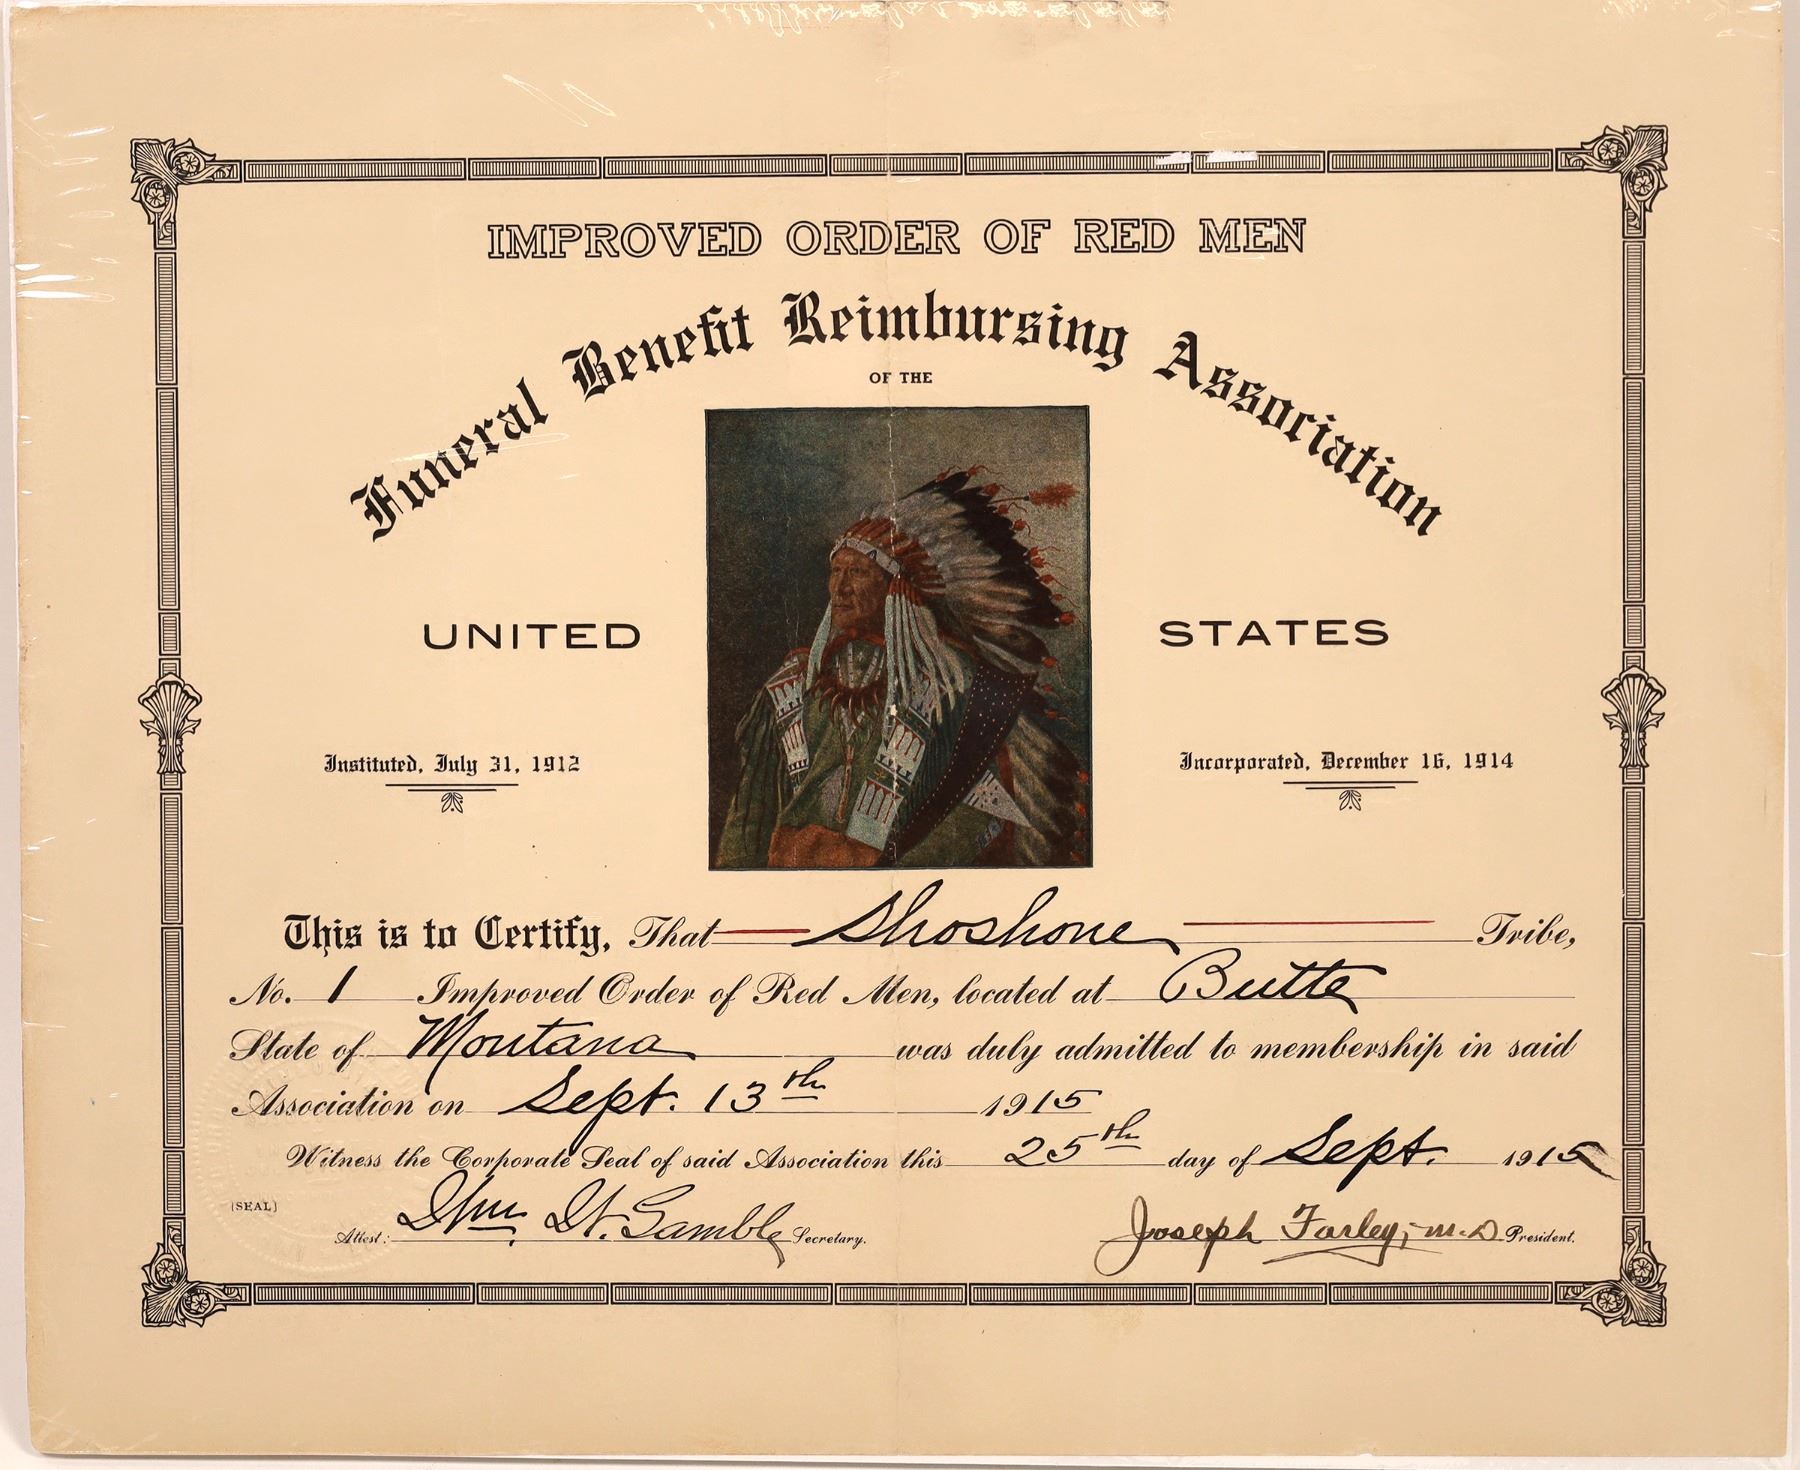 IMPROVED ORDER OF RED MEN
Funeral Benefit Reimbursing Association
OF THE
UNITED STATES
Instituted, July 31, 1912
Incorporated, December 16, 1914
This is to Certify, That Shoshone Tribe,
No. 1 Improved Order of Red Men, located at Butte
State of Montana was duly admitted to membership in said
Association on Sept. 13th 1915
Witness the Corporate Seal of said Association this 25th day of Sept. 1915
(SEAL)
Attest: Wm. H. Gamble Secretary.
Joseph Farley, M.D. President.